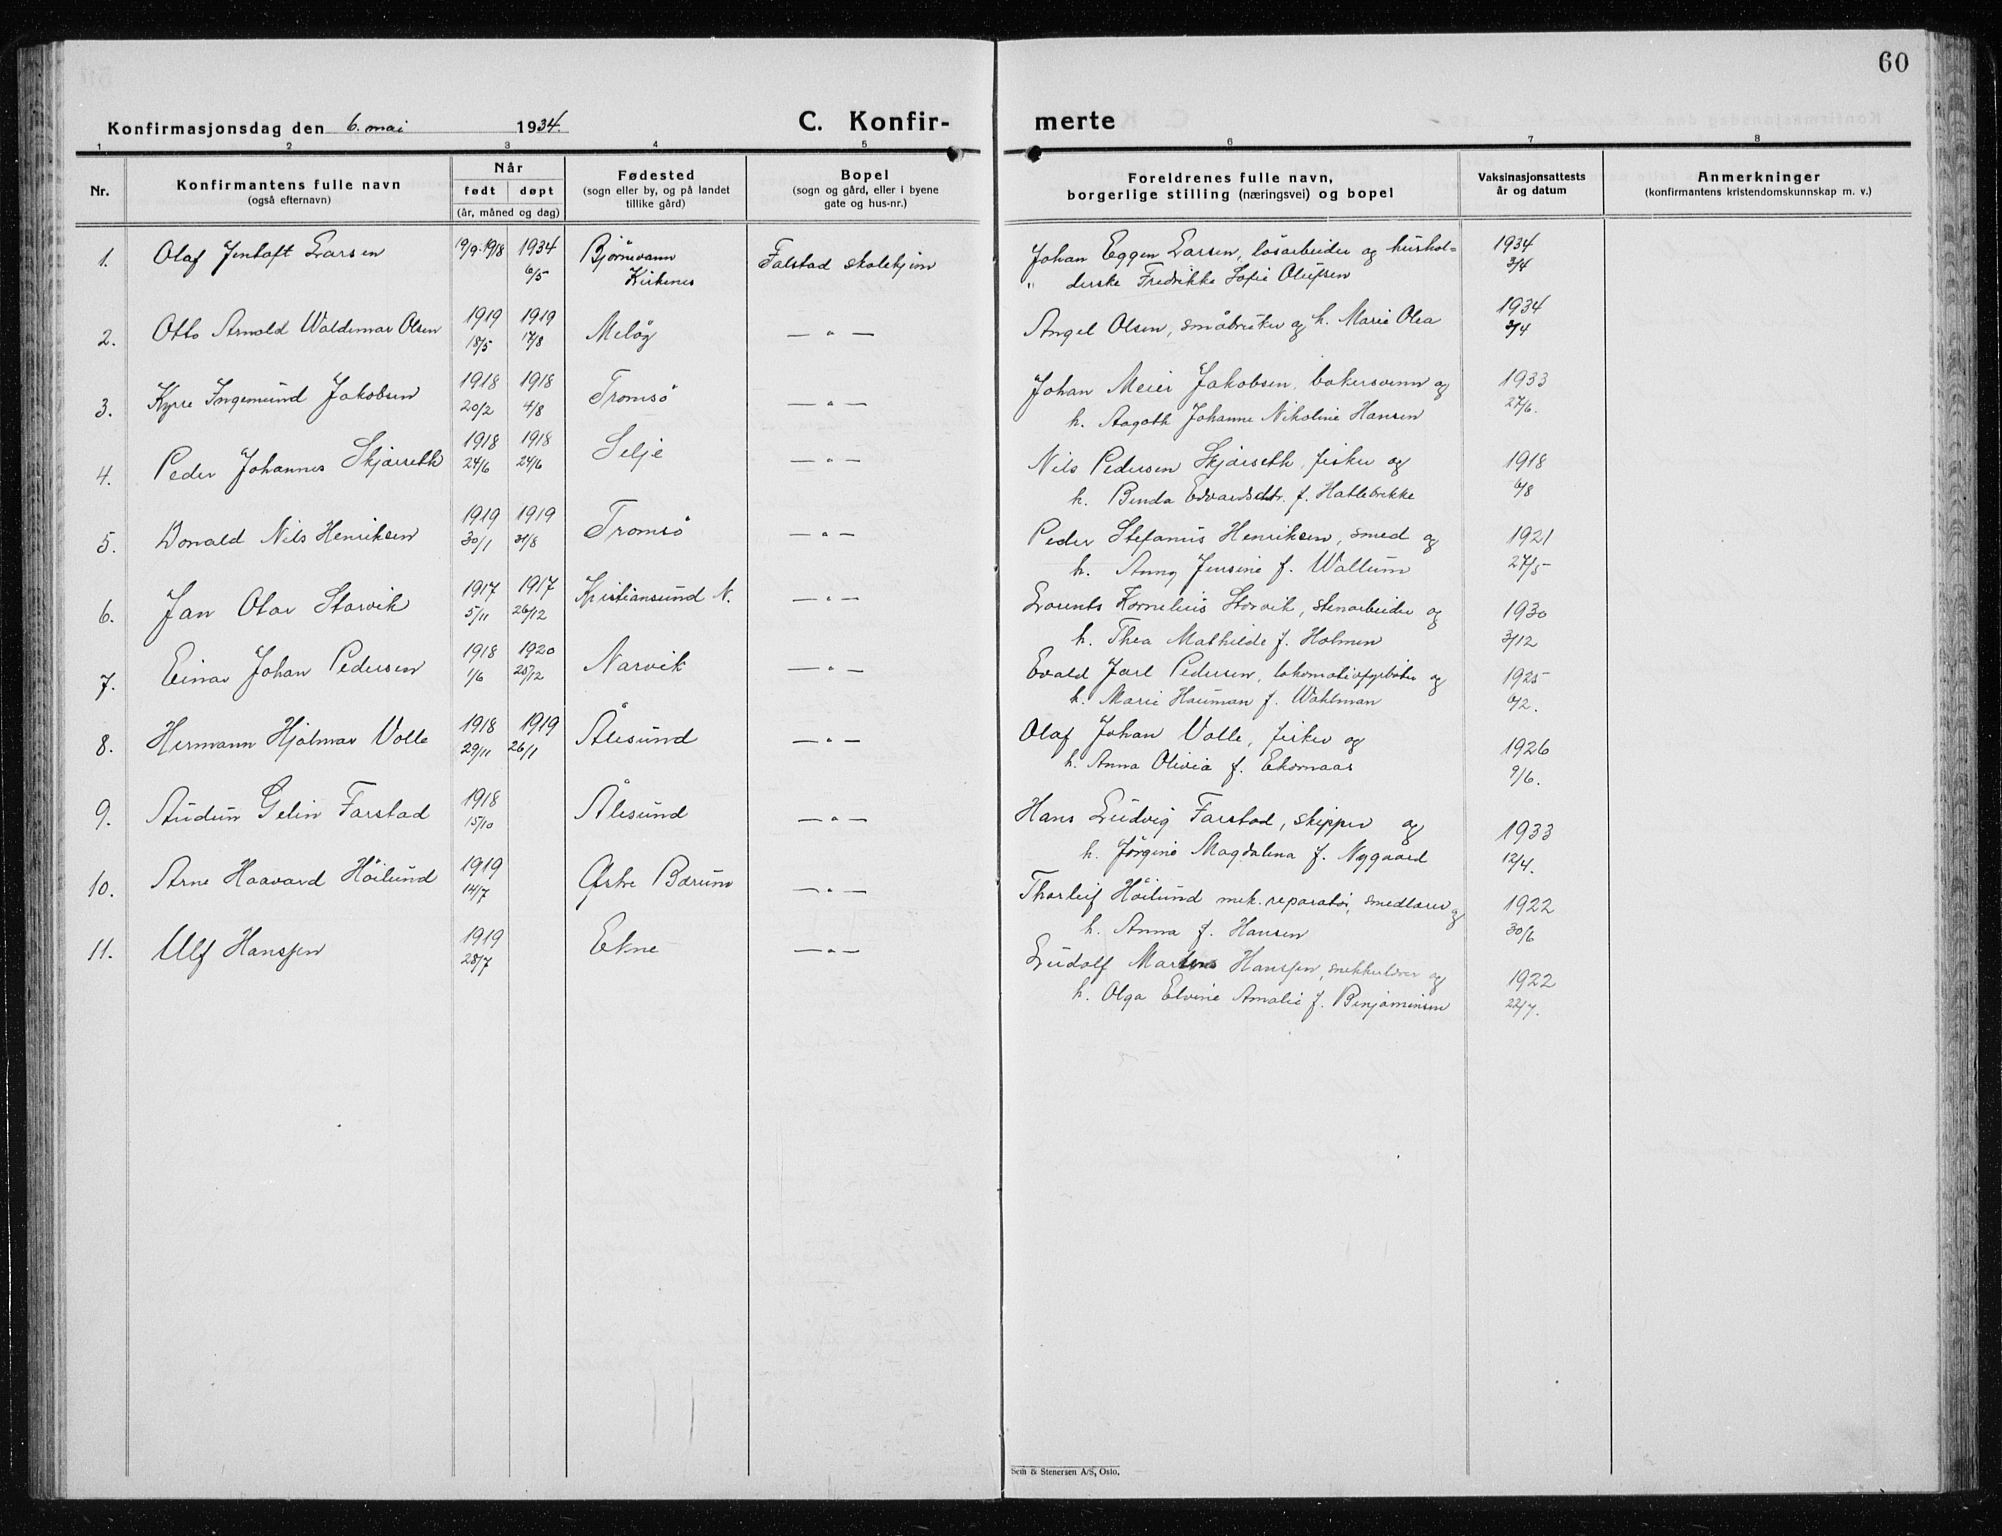 60
Konfirmasjonsdag den 6. mai 1934.
C. Konfir- merte
1 2 3 4 5 6 7 8
Nr.
Konfirmantens fulle navn
(også efternavn)
Når
født døpt
(år, måned og dag)
Fødested
(sogn eller by, og på landet
tillike gård)
Bopel
(sogn og gård, eller i byene
gate og hus-nr.)
Foreldrenes fulle navn,
borgerlige stilling (næringsvei) og bopel
Vaksinasjonsattests
år og datum
Anmerkninger
(konfirmantens kristendomskunnskap m. v.)
1. Olaf Jentoft Larsen 19/9-1918 1934 Bjørnevann Falstad skolehjem Johan Eggen Larsen, løsarbeider og hushol- 1934
6/5 Kirkenes " derske Fredrikke Sofie Olufsen 3/4
2. Otto Arnold Waldemar Olsen 1919 1919 Meløy — " — Angel Olsen, småbruker og h. Marie Olea 1934
18/5 17/8 3/4
3. Kyrre Ingemund Jakobsen 1918 1918 Tromsö — " — Johan Meier Jakobsen, bakersvenn og 1933
20/2 4/8 h. Aagoth Johanne Nikoline Hansen 27/6.
4. Peder Johannes Skjærseth 1918 1918 Selje — " — Nils Pedersen Skjærseth, fisker og 1918
24/6 24/6 h. Benda Edvardsdtr. f. Hatlebrekke 6/8
5. Donald Nils Henriksen 1919 1919 Tromsö — " — Peder Stefanus Henriksen, smed og 1921
30/1 31/8 h. Anny Jensine f. Wallum 27/5
6. Jan Olav Storvik 1917 1917 Kristiansund N. — " — Lorents Kornelius Storvik, stenarbeider og 1930
5/11 26/12 h. Thea Mathilde f. Holmen 3/12
7. Einar Johan Pedersen 1918 1920 Narvik — " — Evald Jarl Pedersen, lokomotivfyrbøter og 1925
1/6 25/12 h. Marie Hauman f. Wahlman 6/2.
8. Hermann Hjalmar Volle 1918 1919 Ålesund — " — Olaf Johan Volle, fisker og 1926
29/11 26/1 h. Anna Olivia f. Ekornaas 9/6.
9. Audun Gelin Farstad 1918 Ålesund — " — Hans Ludvig Farstad, skipper og 1933
15/10 h. Jørgine Magdalena f. Nygaard 12/4.
10. Arne Haavard Höilund 1919 Østre Bærum — " — Thorleif Höilund mek. reparatør, smedlærer og 1922
14/7 h. Anna f. Hansen 30/6
11. Ulf Hanssen 1919 Ekne — " — Ludolf Martens Hanssen, snekkerlærer og 1922
28/7 h. Olga Elvine Amalie f. Benjaminsen 22/7.
Seth & Stenersen A/S, Oslo.